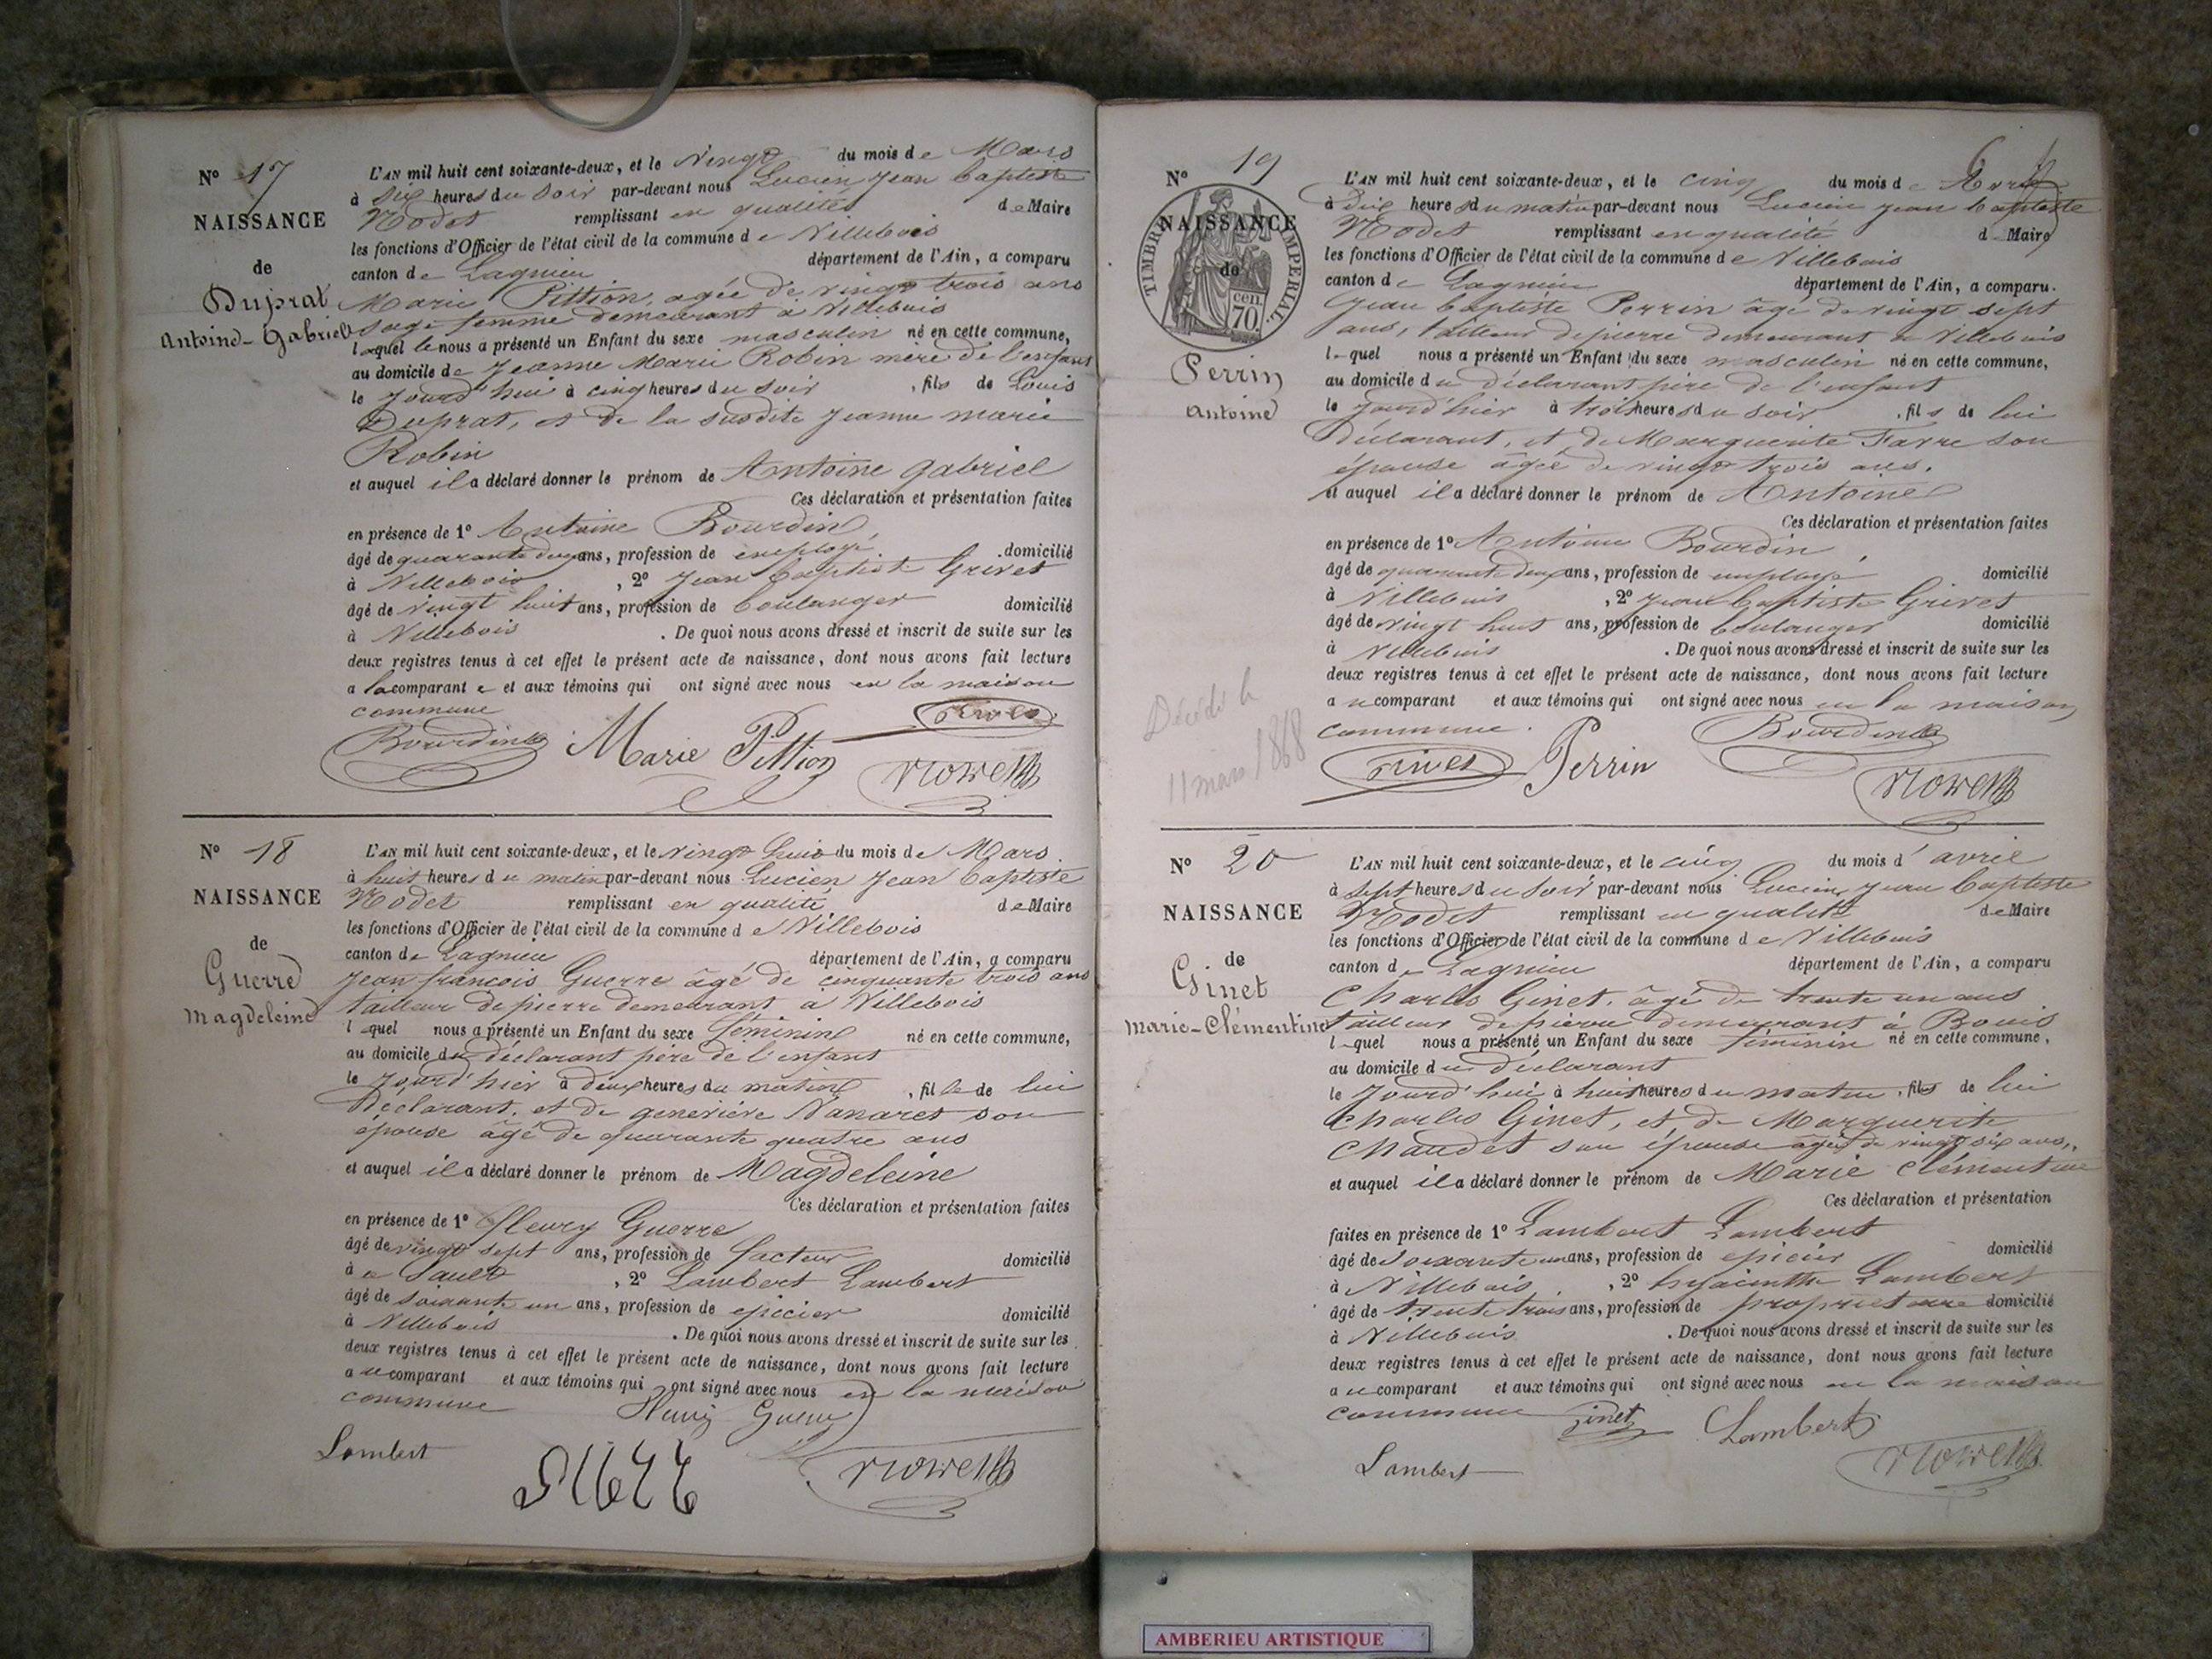 N° 17
NAISSANCE
de
Duprat
Antoine-Gabriel
L'AN mil huit cent soixante-deux, et le Vingt du mois de Mars
à six heures du soir par-devant nous Lucien Jean Baptiste
Nodet remplissant en qualité de Maire
les fonctions d'Officier de l'état civil de la commune de Villebois
canton de Lagnieu département de l'Ain, a comparu
Marie Pittion, agée de vingt trois ans
sage femme demeurant à Villebois
laquelle nous a présenté un Enfant du sexe masculin né en cette commune,
au domicile de Jeanne Marie Robin mère de l'enfant
le Jourd'hui à cinq heures du soir , fils de Louis
Duprat, et de la susdite Jeanne Marie
Robin
et auquel il a déclaré donner le prénom de Antoine Gabriel
Ces déclaration et présentation faites
en présence de 1° Antoine Bourdin,
âgé de quarante deux ans, profession de employé . domicilié
à Villebois , 2° Jean Baptiste Grivet
âgé de vingt huit ans, profession de boulanger domicilié
à Villebois . De quoi nous avons dressé et inscrit de suite sur les
deux registres tenus à cet effet le présent acte de naissance, dont nous avons fait lecture
a la comparante et aux témoins qui ont signé avec nous en la maison
commune
Bourdin Marie Pittion Grivet
Nodet
N° 18
NAISSANCE
de
Guerre
Magdeleine
L'AN mil huit cent soixante-deux, et le vingt huit du mois de Mars
à huit heures du matin par-devant nous Lucien Jean Baptiste
Nodet remplissant en qualité de Maire
les fonctions d'Officier de l'état civil de la commune de Villebois
canton de Lagnieu département de l'Ain, a comparu
Jean françois Guerre âgé de cinquante trois ans
tailleur de pierre demeurant à Villebois
lequel nous a présenté un Enfant du sexe féminin né en cette commune,
au domicile du déclarant père de l'enfant
le Jourd'hier à deux heures du matin , fille de lui
Déclarant, et de geneviève Nanaret son
épouse âgé de quarante quatre ans
et auquel il a déclaré donner le prénom de Magdeleine
Ces déclaration et présentation faites
en présence de 1° fleury Guerre
âgé de vingt sept ans, profession de facteur domicilié
à Sault , 2° Lambert Lambert
âgé de soixante un ans, profession de épicier domicilié
à Villebois . De quoi nous avons dressé et inscrit de suite sur les
deux registres tenus à cet effet le présent acte de naissance, dont nous avons fait lecture
au comparant et aux témoins qui ont signé avec nous en la maison
commune fleury Guerre
Lambert
Nodet
6
N° 19
NAISSANCE
de
TIMBRE IMPERIAL
70 cen.
Perrin
Antoine
Décédé le
11 mars 1868
L'AN mil huit cent soixante-deux, et le cinq du mois de Avril
à dix heures du matin par-devant nous Lucien Jean Baptiste
Nodet remplissant en qualité de Maire
les fonctions d'Officier de l'état civil de la commune de Villebois
canton de Lagnieu département de l'Ain, a comparu.
Jean Baptiste Perrin âgé de vingt sept
ans, tailleur de pierre demeurant à Villebois
lequel nous a présenté un Enfant du sexe masculin né en cette commune,
au domicile du déclarant père de l'enfant
le Jourd'hier à trois heures du soir , fils de lui
Déclarant, et de Marguerite Favre son
épouse âgée de vingt trois ans.
et auquel il a déclaré donner le prénom de Antoine
Ces déclaration et présentation faites
en présence de 1° Antoine Bourdin,
âgé de quarante deux ans, profession de employé domicilié
à Villebois , 2° Jean Baptiste Grivet
âgé de vingt huit ans, profession de boulanger domicilié
à Villebois . De quoi nous avons dressé et inscrit de suite sur les
deux registres tenus à cet effet le présent acte de naissance, dont nous avons fait lecture
au comparant et aux témoins qui ont signé avec nous en la maison
commune. Bourdin
Grivet Perrin
Nodet
N° 20
NAISSANCE
de
Ginet
Marie-Clémentine
L'AN mil huit cent soixante-deux, et le cinq du mois d'avril
à sept heures du soir par-devant nous Lucien Jean Baptiste
Nodet remplissant en qualité de Maire
les fonctions d'Officier de l'état civil de la commune de Villebois
canton de Lagnieu département de l'Ain, a comparu
Charles Ginet, âgé de trente un ans
tailleur de pierre demeurant à Bouis
lequel nous a présenté un Enfant du sexe féminin né en cette commune,
au domicile du déclarant
le Jourd'hui à huit heures du matin , fils de lui
Charles Ginet, et de Marguerite
Chaudet son épouse âgée de vingt six ans,
et auquel il a déclaré donner le prénom de Marie Clémentine
Ces déclaration et présentation
faites en présence de 1° Lambert Lambert
âgé de soixante un ans, profession de épicier domicilié
à Villebois , 2° hyacinthe Lambert
âgé de trente trois ans, profession de propriétaire domicilié
à Villebois . De quoi nous avons dressé et inscrit de suite sur les
deux registres tenus à cet effet le présent acte de naissance, dont nous avons fait lecture
au comparant et aux témoins qui ont signé avec nous en la maison
commune Ginet Lambert
Lambert
Nodet
AMBERIEU ARTISTIQUE